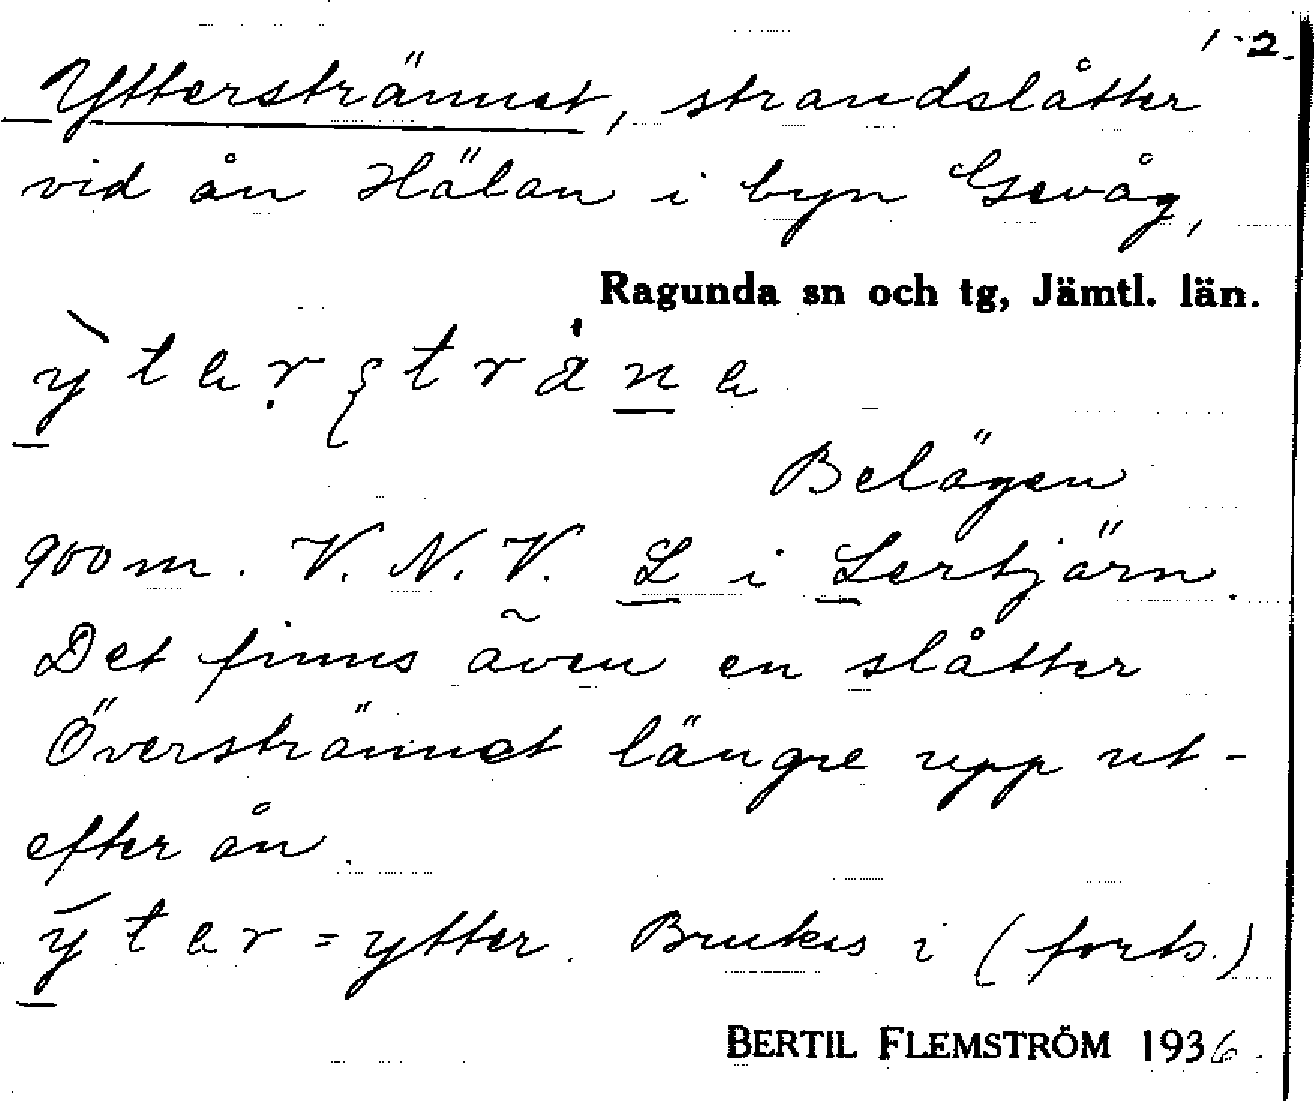 1-2.
Ytterstrännet, strandslåtter
vid ån Hälan i byn Gevåg,
Ragunda sn och tg, Jämtl. län.
Belägen
900 m. V. N. V. L i Lertjärn.
Det finns även en slåtter
Överstrännet längre upp ut-
efter ån.
= ytter. Brukas i (forts.)
BERTIL FLEMSTRÖM 1936.